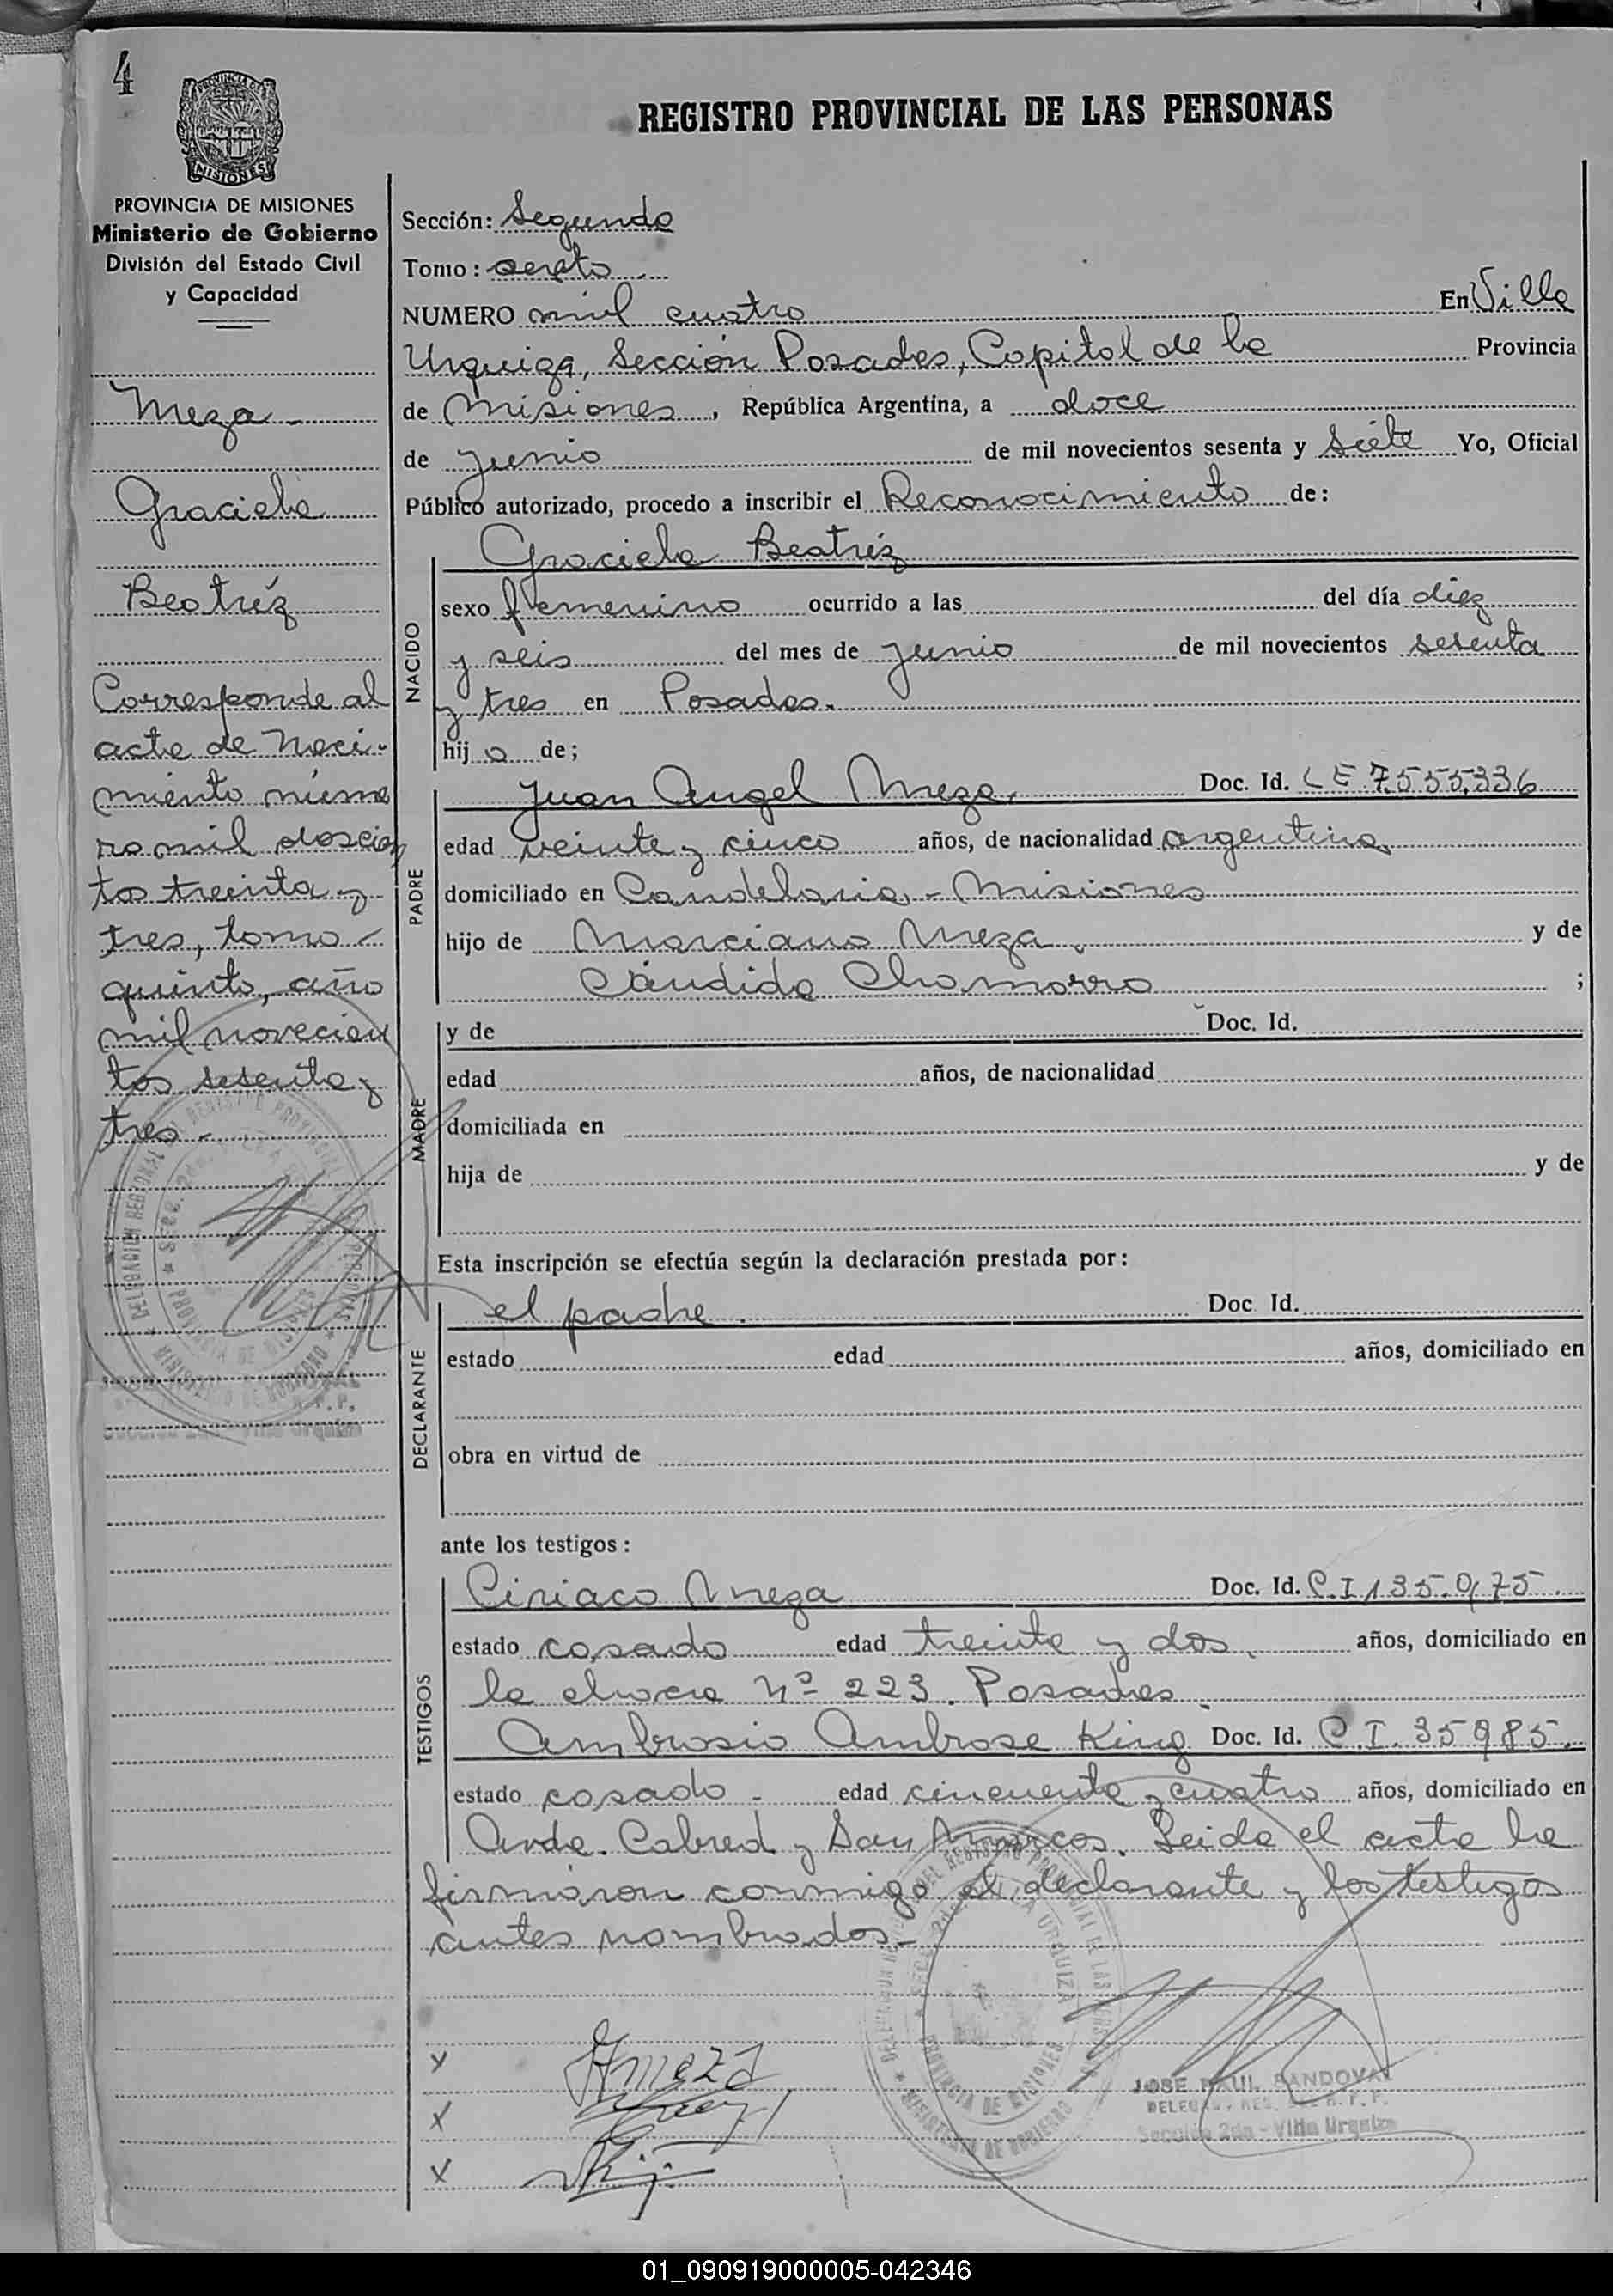 4
REGISTRO PROVINCIAL DE LAS PERSONAS
MISIONES
PROVINCIA DE MISIONES
Ministerio de Gobierno
División del Estado Civil
y Capacidad
Meza -
Graciela
Beatríz
Corresponde al
acta de naci-
miento núme
ro mil doscien
tos treinta y
tres, tomo -
quinto, año
mil novecien
tos sesenta y
tres -
Sección: Segunda
Tomo: sexto
NUMERO mil cuatro En Villa
Urquiza, Sección Posadas, Capital de la Provincia
de Misiones, República Argentina, a doce
de junio de mil novecientos sesenta y siete Yo, Oficial
Público autorizado, procedo a inscribir el Reconocimiento de:
NACIDO
Graciela Beatríz
sexo femenino ocurrido a las del día diez
y seis del mes de junio de mil novecientos sesenta
y tres en Posadas.
hij a de;
PADRE
Juan Angel Meza. Doc. Id. LE 7.555.336
edad veinte y cinco años, de nacionalidad argentina
domiciliado en Candelaria - Misiones
hijo de Marciano Meza y de
Cándida Chamorro ;
MADRE
y de Doc. Id.
edad años, de nacionalidad
domiciliada en
hija de y de
Esta inscripción se efectúa según la declaración prestada por:
DECLARANTE
el padre. Doc Id.
estado edad años, domiciliado en
obra en virtud de
ante los testigos:
TESTIGOS
Ciriaco Meza Doc. Id. C.I 135.075.
estado casado edad treinta y dos años, domiciliado en
la chacra Nº 223. Posadas
Ambrosio Ambrose King Doc. Id. C.I. 35985.
estado casado - edad cincuenta y cuatro años, domiciliado en
Avda. Cabred y San Marcos. Leida el acta la
firmaron conmigo el declarante y los testigos
antes nombrados.-
x
x
x
JOSE RAUL SANDOVAL
Sección 2da - Villa Urquiza
01_090919000005-042346